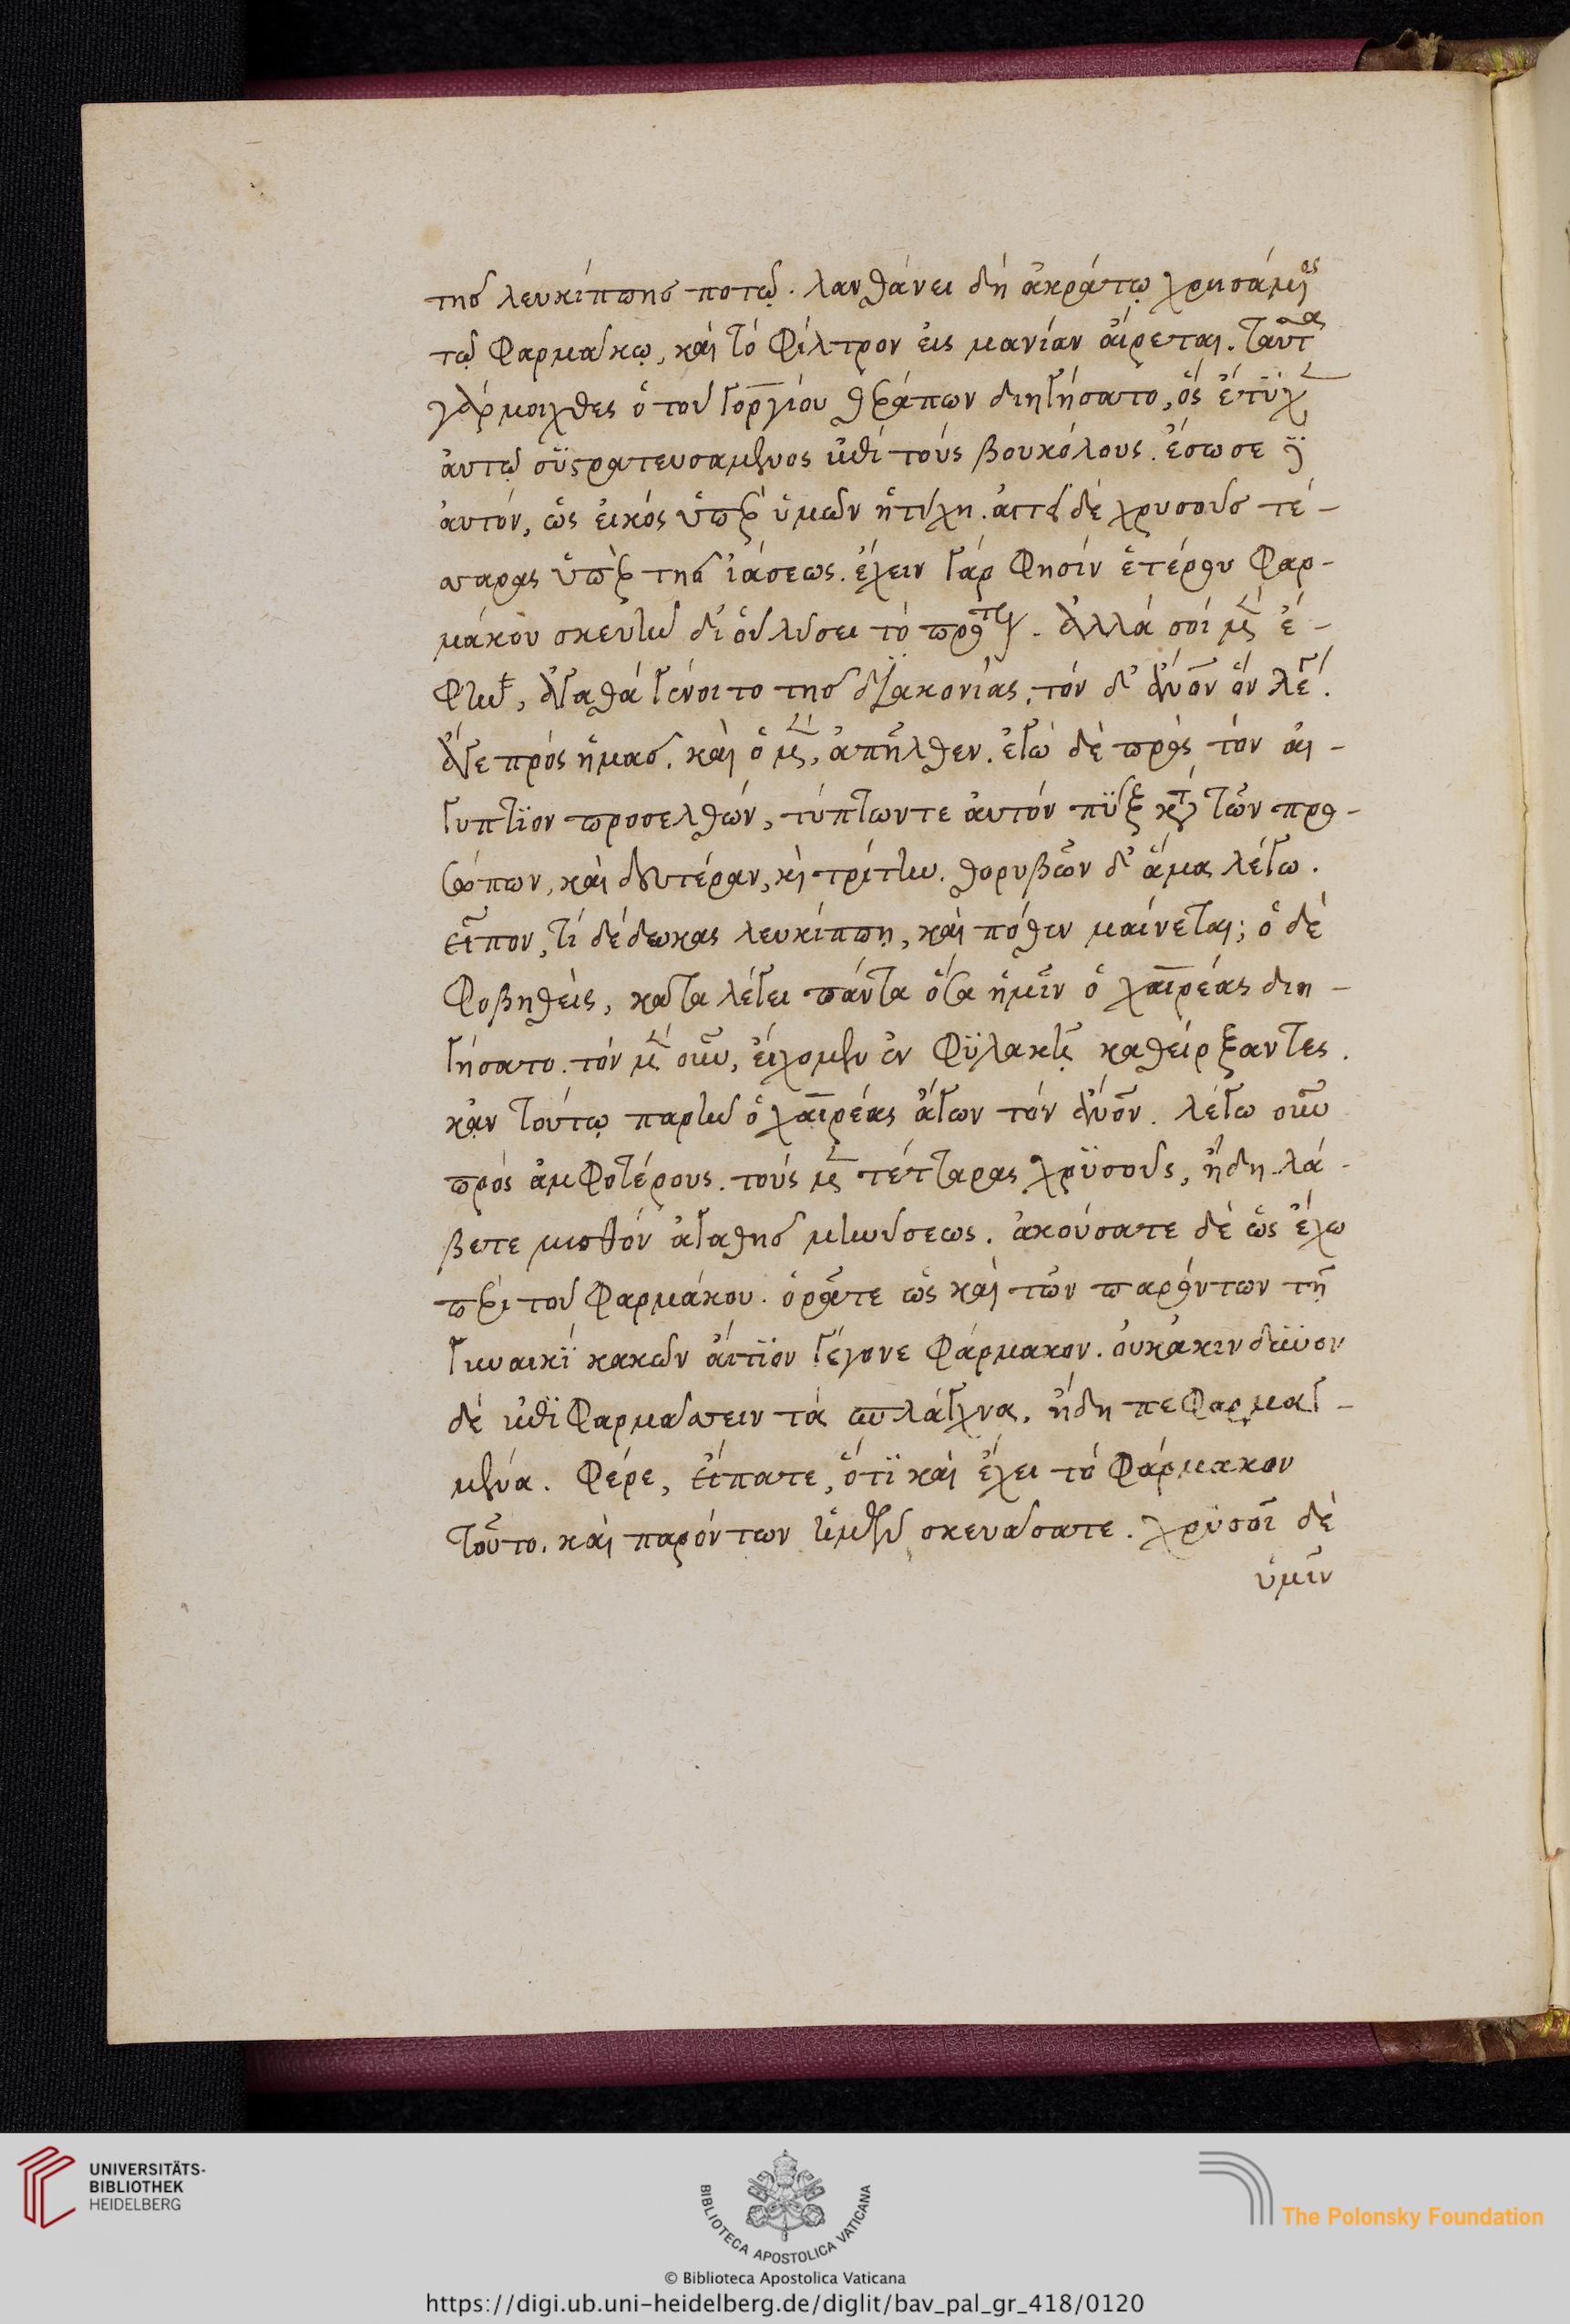 της λευκίππης ποτῷ. λανθάνει δὴ ἀκράτῳ χρησάμενος
τῷ φαρμάκῳ, καὶ τὸ φίλτρον εἰς μανίαν αἴρεται. ταῦτα
γάρ μοι χθες ὁ τοῦ γοργίου θεράπων διηγήσατο, ὃς ἔτυχε
αὐτῷ συστρατευσάμενος ἐπὶ τοὺς βουκόλους. ἔσωσε
αὐτόν, ὡς εἰκός ὑπὲρ ὑμῶν ἡ τύχη. αἰτεῖ δὲ χρυσοῦς τέ-
σσαρας ὑπὲρ τῆς ἰάσεως. ἔχειν γάρ φησίν ἑτέρου φαρ-
μάκου σκευὴν δι' οὗ λύσει τὸ πρότερον. ἀλλὰ σοί μὲν ἔ-
φην, ἀγαθὰ γένοιτο τῆς διακονίας, τόν δ' ἄνθρωπον ὃν λέγεις.
ἄγε πρὸς ἡμᾶς. καὶ ὁ μὲν, ἀπῆλθεν. ἐγὼ δὲ πρὸς τὸν αἰ-
γύπτιον προσελθών, τύπτω τε αὐτὸν πὺξ κατὰ τῶν προ-
σώπων, καὶ δευτέραν, καὶ τρίτην. θορυβῶν δ' ἅμα λέγω.
εἶπον, τί δέδωκας λευκίππῃ, καὶ πόθεν μαίνεται; ὁ δὲ
φοβηθεὶς, κατα λέγει πάντα ὅσα ἡμῖν ὁ χαιρέας διη-
γήσατο. τόν μὲν οὖν, εἴχομεν ἐν φυλακῇ καθείρξαντες.
κἀν τούτῳ παρῆν ὁ χαιρέας ἄγων τὸν ἄνθρωπον. λέγω οὖν
πρὸς ἀμφοτέρους. τοὺς μὲν τέτταρας χρυσοῦς, ἤδη λά-
βετε μισθόν ἀγαθῆς μηνύσεως. ἀκούσατε δὲ ὡς ἔχω
περὶ τοῦ φαρμάκου. ὁρᾶτε ὡς καὶ τῶν παρόντων τῇ
γυναικὶ κακῶν αἴτιον γέγονε φάρμακον. οὐκ ἀκινδυνον
δὲ ἐπιφαρμάσσειν τὰ σπλάγχνα, ἤδη πεφαρμαγ-
μένα. φέρε, εἴπατε, ὅτι καὶ ἔχει τὸ φάρμακον
τοῦτο. καὶ παρόντων ἡμῶν σκευάσατε. χρυσοῖ δὲ
ὑμῖν
UNIVERSITÄTS-
BIBLIOTHEK
HEIDELBERG
BIBLIOTECA APOSTOLICA VATICANA
The Polonsky Foundation
© Biblioteca Apostolica Vaticana
https://digi.ub.uni-heidelberg.de/diglit/bav_pal_gr_418/0120